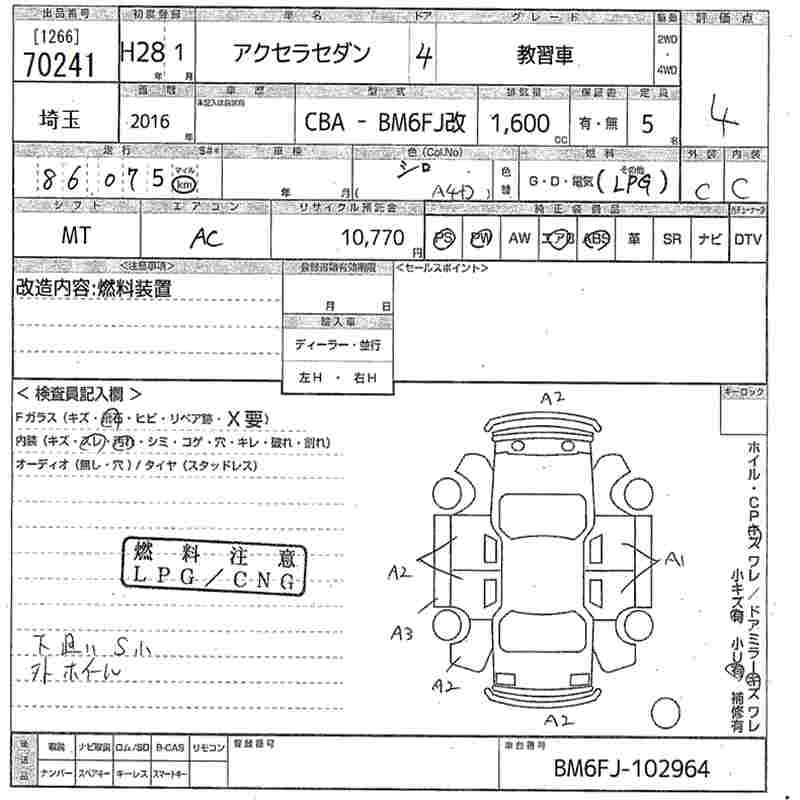 出品番号 初度登録 車名 ドア グレード 駆動 評価点
[1266]
70241
H28年 1月 アクセラセダン 4 教習車 2WD・4WD 4
埼玉
2016年 型式 排気量 保証書 定員
CBA - BM6FJ改 1,600cc 有・無 5名
走行 S#* 車検 色(Col.No) 燃料 外装 内装
86,075 マイル km 年 月 シロ (A4D) 色替 G・D・電気(その他 LPG) C C
シフト エアコン リサイクル預託金 純正装備品
MT AC 10,770円 PS PW AW エアB ABS 革 SR ナビ DTV
<注意事項> <セールスポイント>
改造内容:燃料装置
月 日
輸入車
ディーラー・並行
左H・右H
<検査員記入欄> キーロック
Fガラス(キズ・飛石・ヒビ・リペア跡・X要)
内装(キズ・スレ・汚れ・シミ・コゲ・穴・キレ・破れ・割れ)
オーディオ(無し・穴)/タイヤ(スタッドレス)
燃料注意
LPG/CNG
下廻り S小
外ホイール
A2
A2
A1
A3
A2
A2
ホイル・CPキズワレ/ドアミラーキズワレ
小キズ有 小U有 補修有
後送品 取説 ナビ取説 ロム/SD B-CAS リモコン 登録番号 車台番号
ナンバー スペアキー キーレス スマートキー
BM6FJ-102964